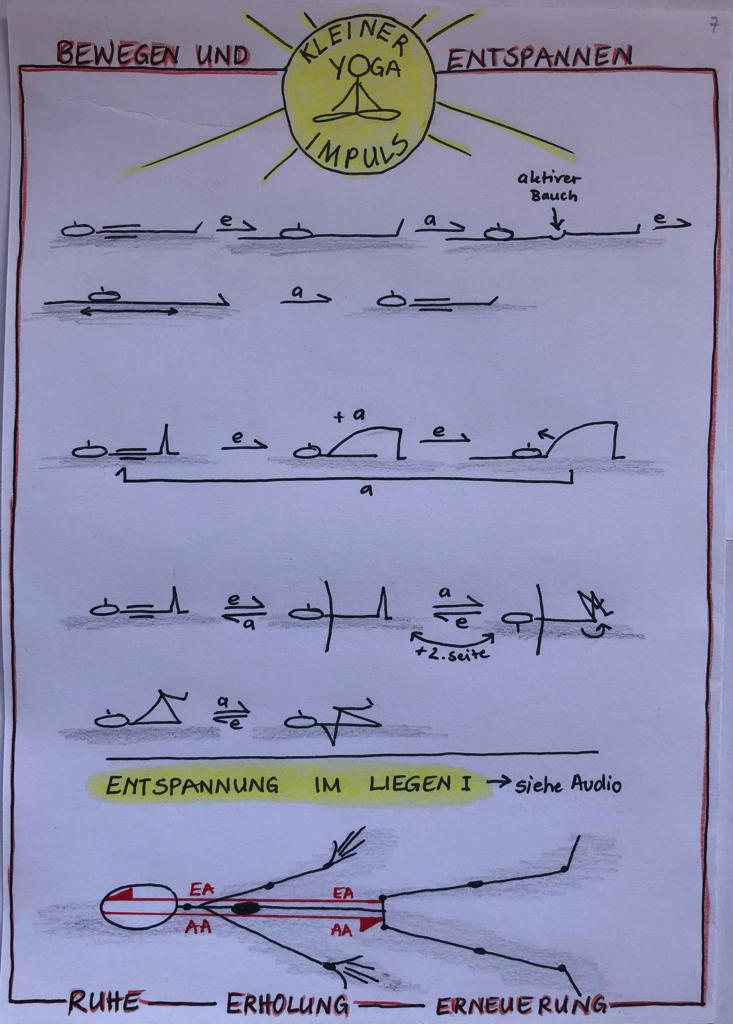 7
BEWEGEN UND
KLEINER
YOGA
IMPULS
ENTSPANNEN
aktiver
Bauch
e a e
a
+ a
e e
a
e a a e
+2. seite
a e
ENTSPANNUNG IM LIEGEN I → siehe Audio
EA EA
AA AA
RUHE ERHOLUNG ERNEUERUNG